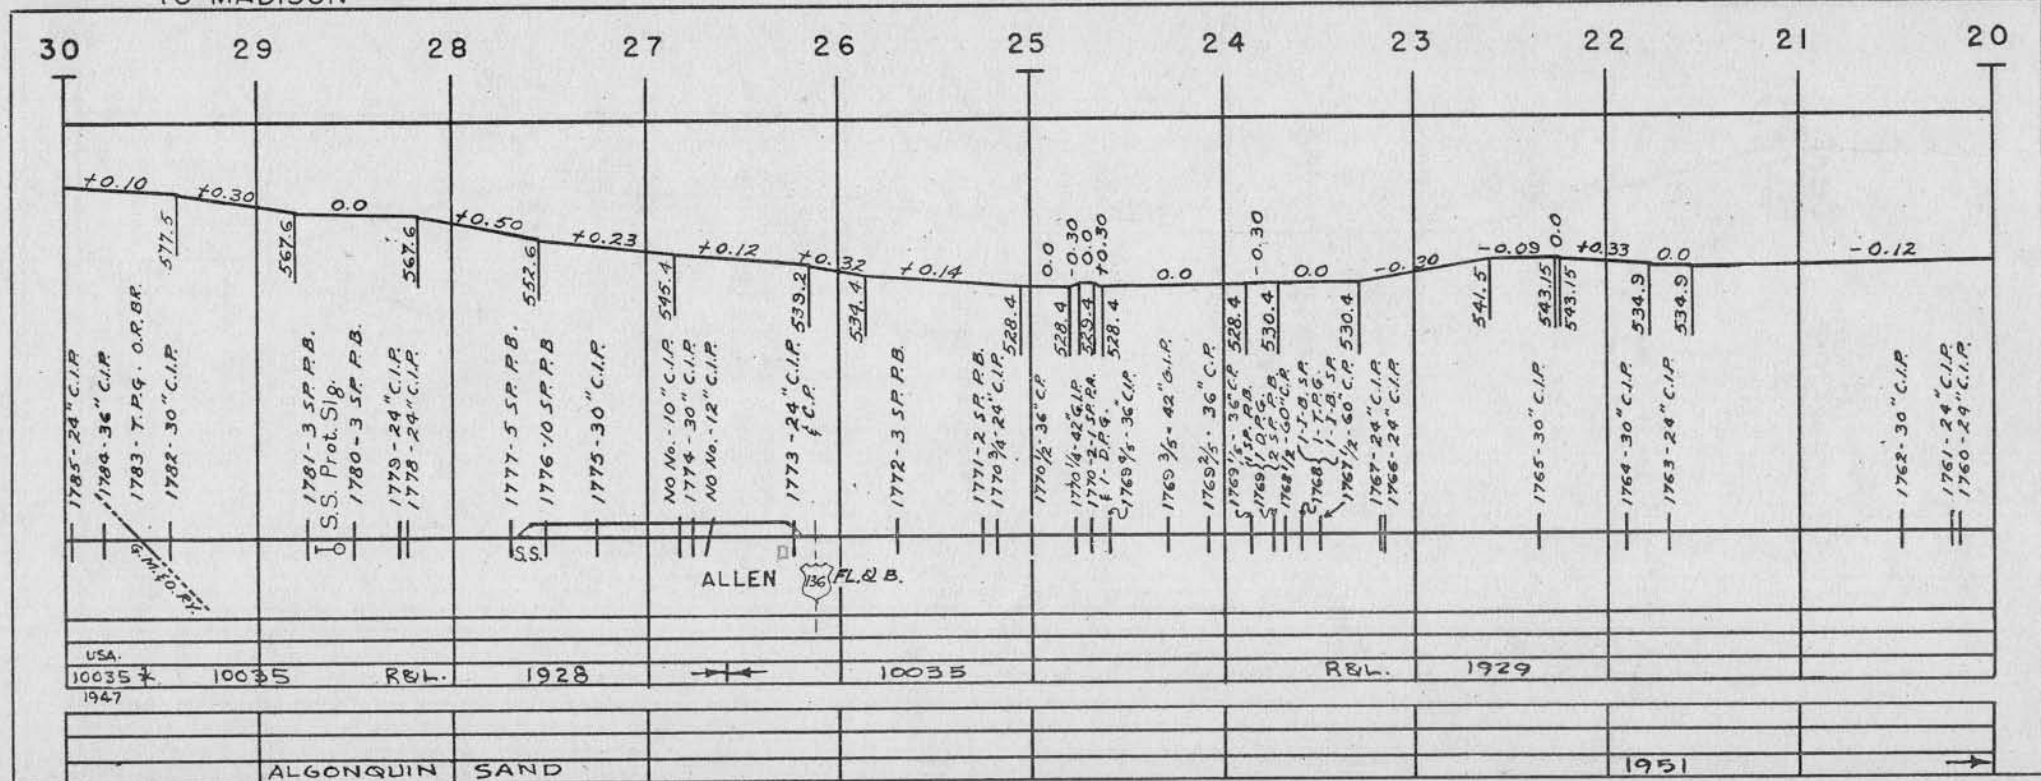 TO MADISON
30 29 28 27 26 25 24 23 22 21 20
+0.10 +0.30 0.0 +0.50 +0.23 +0.12 +0.32 +0.14 0.0 -0.30 0.0 +0.30 0.0 -0.30 0.0 -0.30 -0.09 0.0 +0.33 0.0 -0.12
577.5 567.6 567.6 552.6 545.4 539.2 534.4 528.4 528.4 529.4 528.4 528.4 530.4 530.4 541.5 543.15 543.15 534.9 534.9
1785-24" C.I.P.
1784-36" C.I.P.
1783-T.P.G. O.R. BR.
1782-30" C.I.P.
1781-3 SP. P.B.
S.S. Prot. Sig.
1780-3 SP. P.B.
1779-24" C.I.P.
1778-24" C.I.P.
1777-5 SP. P.B.
1776-10 SP. P.B
1775-30" C.I.P.
NO NO.-10" C.I.P.
1774-30" C.I.P.
NO NO.-12" C.I.P.
1773-24" C.I.P.
& C.P.
1772-3 SP. P.B.
1771-2 SP. P.B.
1770 3/4-24" C.I.P.
1770 1/2-36" C.P.
1770 1/4-42" G.I.P.
1770-2-1 SP.
& 1-D.P.G.
1769 4/5-36" C.I.P.
1769 3/5-42" G.I.P.
1769 2/5-36" C.P.
1769 1/5-36" C.P.
1769 {1 SP. P.B. 1-D.P.G. 2 SP. P.B.
1768 1/2-60" C.P.
1768 {1-I-B. SP. 1-T.P.G. 1-I-B. SP.
1767 1/2-60" C.P.
1767-24" C.I.P.
1766-24" C.I.P.
1765-30" C.I.P.
1764-30" C.I.P.
1763-24" C.I.P.
1762-30" C.I.P.
1761-24" C.I.P.
1760-24" C.I.P.
G.M.&O. RY.
S.S.
ALLEN 136 FL.& B.
USA.
10035 10035 R&L. 1928 10035 R&L. 1929
1947
ALGONQUIN SAND 1951